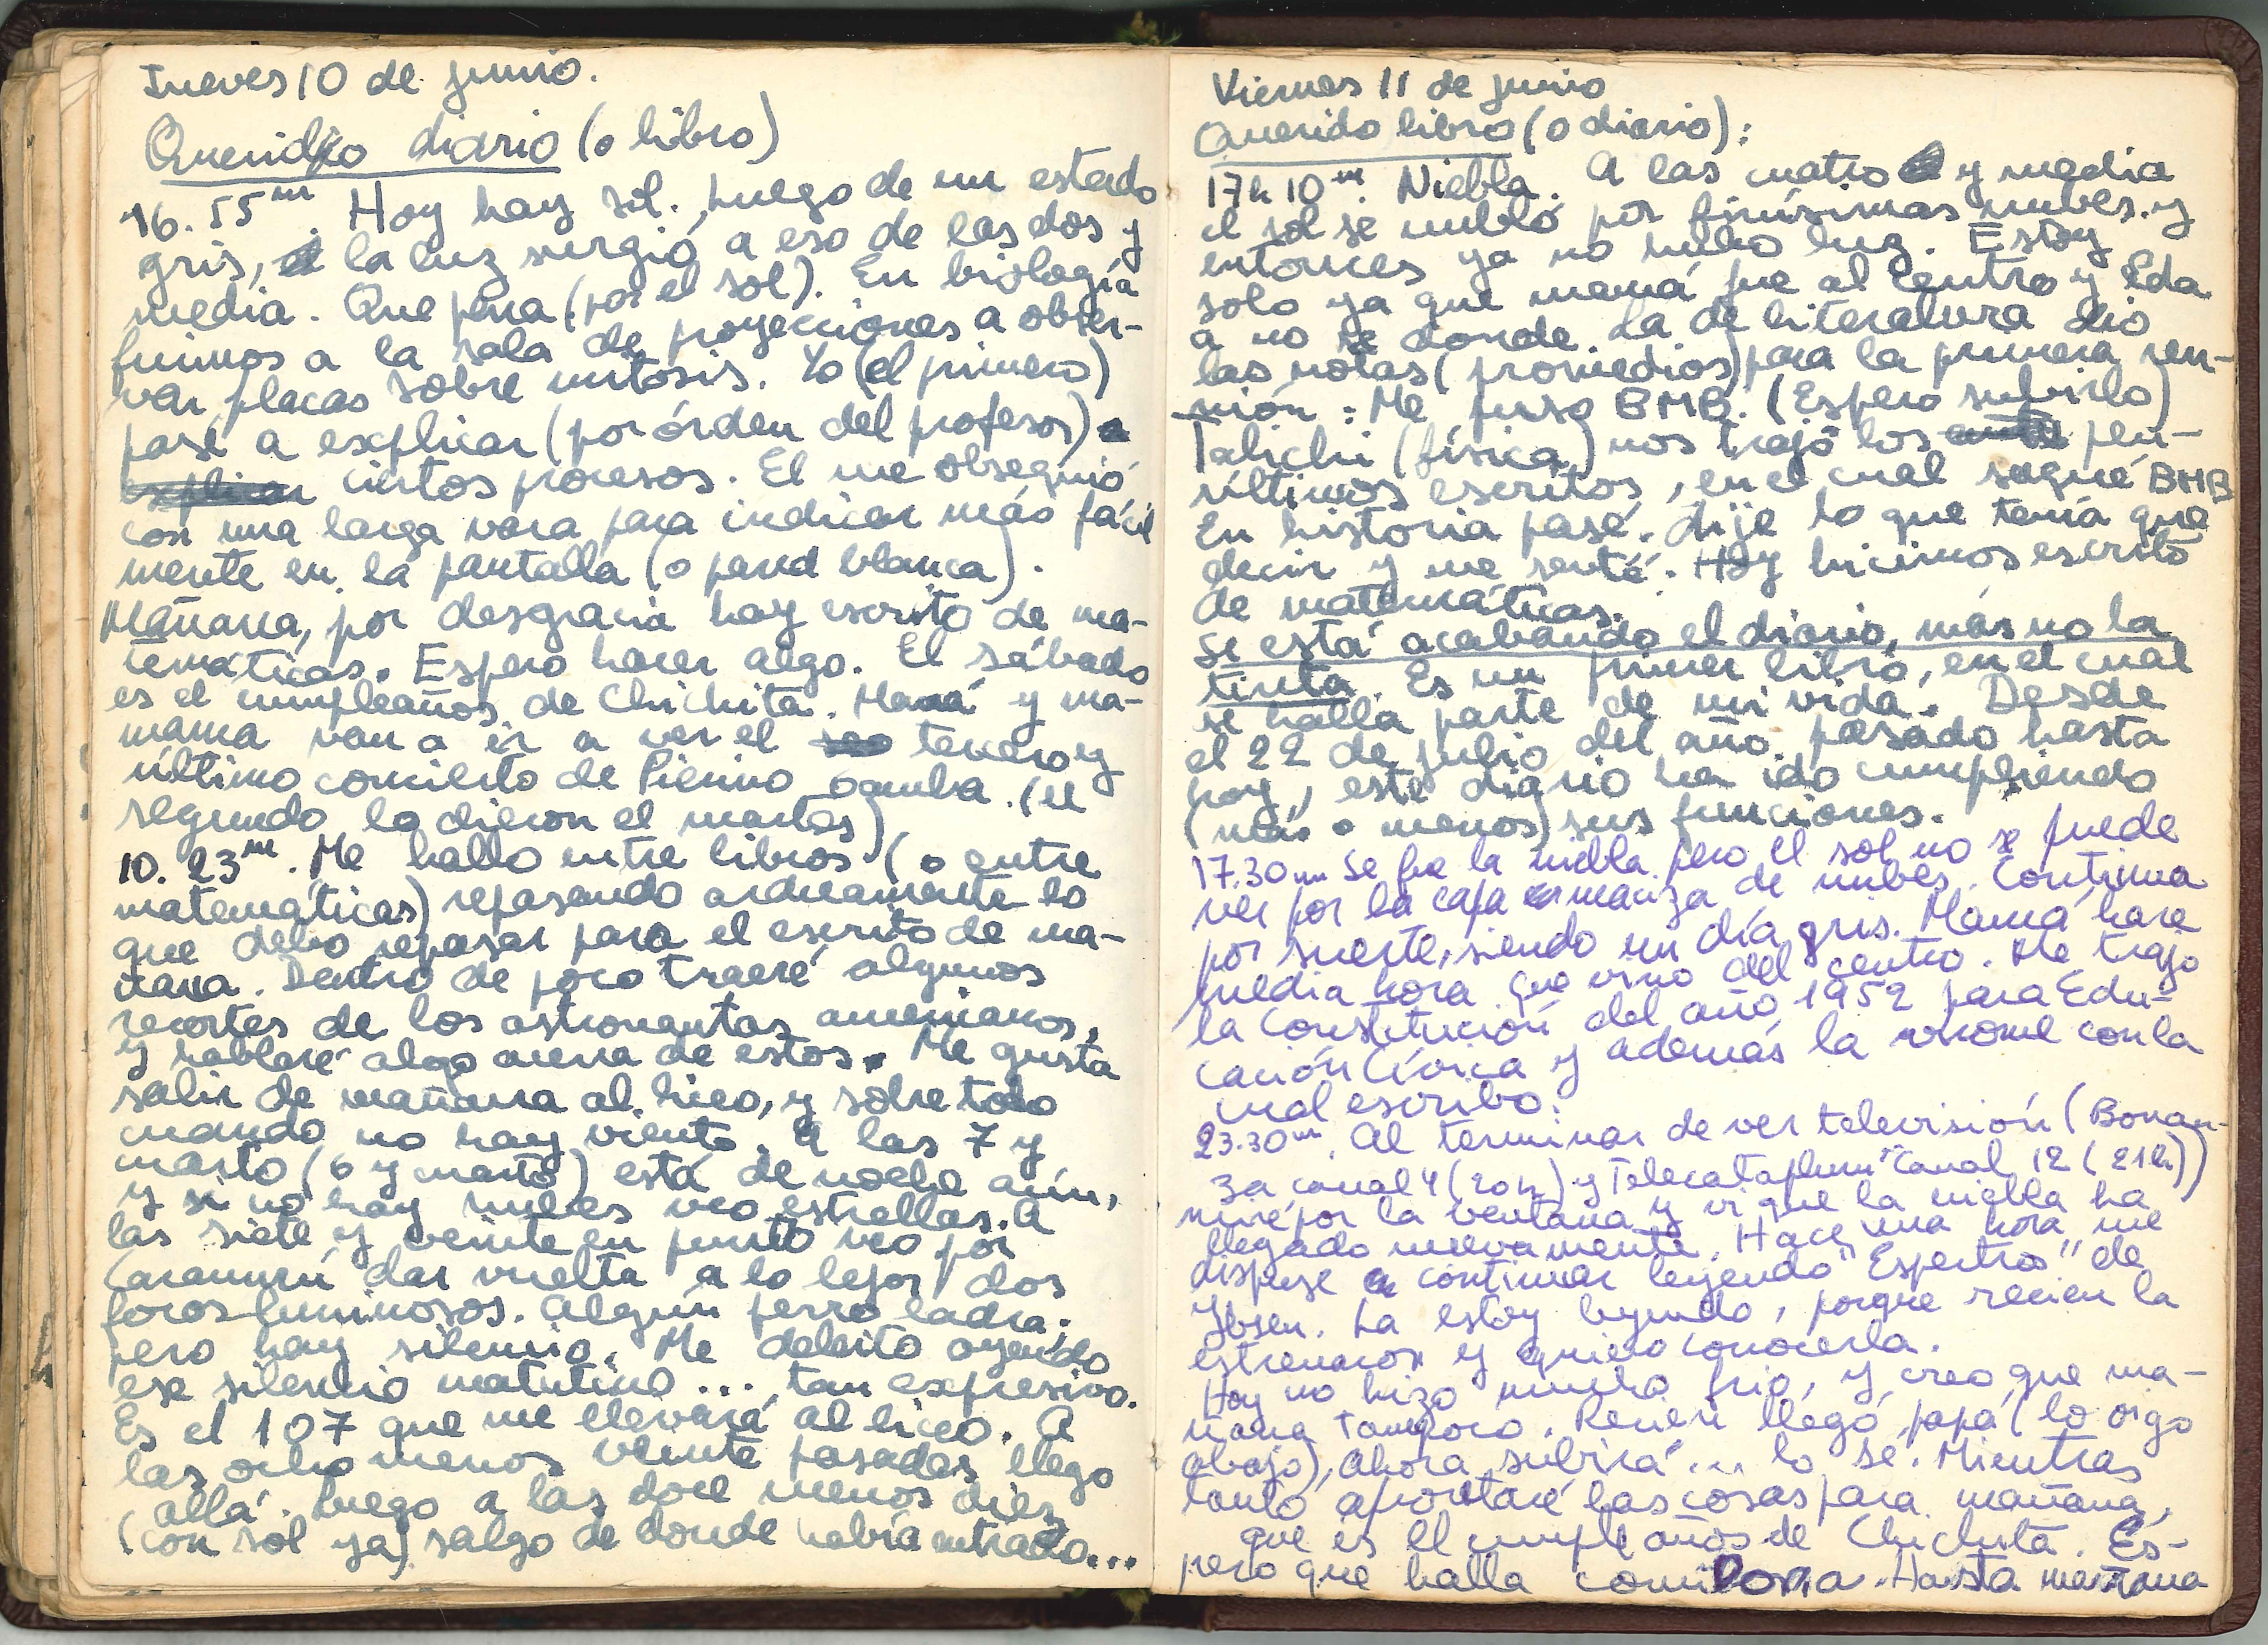 Jueves 10 de junio.
Querido diario (o libro)
16.55m Hoy hay sol., luego de un estado
gris, la luz surgió a eso de las dos y
media. Que pena (por el sol). En biología
fuimos a la sala de proyecciones a obser-
var placas sobre mitosis. Yo (el primero)
pasé a explicar (por órden del profesor)
explicar ciertos procesos. El me obsequió
con una larga vara para indicar más fácil
mente en la pantalla (o pared blanca).
Mañana, por desgracia hay escrito de ma-
temáticas. Espero hacer algo. El sábado
es el cumpleaños de Chichita. Mamá y ma-
mama van a ir a ver el tercero y
último concierto de Pierino Gamba. (el
segundo lo dieron el martes)
10.23m. Me hallo entre libros (o entre
matemáticas) repasando arduamente lo
que debo repasar para el escrito de ma-
ñana. Dentro de poco traeré algunos
recortes de los astronautas americanos,
y hablaré algo acerca de estos. Me gusta
salir de mañana al liceo, y sobre todo
cuando no hay viento. A las 7 y
cuarto (6 y cuarto) está de noche aún,
y si no hay nubes veo estrellas. A
las siete y veinte en punto veo por
Caramurú dar vuelta a lo lejos dos
focos luminosos. Algún perro ladra;
pero hay silencio. Me deleito oyendo
ese silencio matutino... tan expresivo.
Es el 107 que me llevará al liceo. A
las ocho menos veinte pasadas llego
allá. Luego a las doce menos diez
(con sol ya) salgo de donde había entrado...
Viernes 11 de junio
Querido libro (o diario):
17h 10m. Niebla. A las cuatro y media
el sol se nubló por finísimas nubes y
entonces ya no hubo luz. Estoy
solo ya que mamá fue al centro y Eda
a no se donde. La de literatura dio
las notas (promedios) para la primera reu-
nión: Me puso BMB. (Espero subirlo)
Talichi (física) nos trajo los pen-
últimos escritos, en el cual saqué BMB
En historia pasé. Dije lo que tenía que
decir y me senté. Hoy hicimos escrito
de matemáticas.
Se está acabando el diario, más no la
tinta. Es un primer libro, en el cual
se halla parte de mi vida. Desde
el 22 de julio del año pasado hasta
hoy, este diario ha ido cumpliendo
(más o menos) sus funciones.
17.30m Se fue la niebla pero el sol no se puede
ver por la capa maciza de nubes. Continua
por suerte, siendo un día gris. Mamá hace
media hora que vino del centro. Me trajo
la Constitución del año 1952 para Edu-
cación Cívica y además la birome con la
cual escribo.
23.30m. Al terminar de ver televisión (Bonan-
za canal 4 (20h) y Telecataplum "Canal 12 (21h))
miré por la ventana y vi que la niebla ha
llegado nuevamente. Hace una hora me
dispuse a continuar leyendo "Espectros" de
Ibsen. La estoy leyendo, porque recien la
estrenaron y quiero conocerla.
Hoy no hizo mucho frio, y creo que ma-
ñana tampoco. Recien llegó papá (lo oigo
abajo), Ahora subirá... lo sé. Mientras
tanto aprontaré las cosas para mañana,
que es el cumpleaños de Chichita. Es-
pero que halla comilona. Hasta mañana